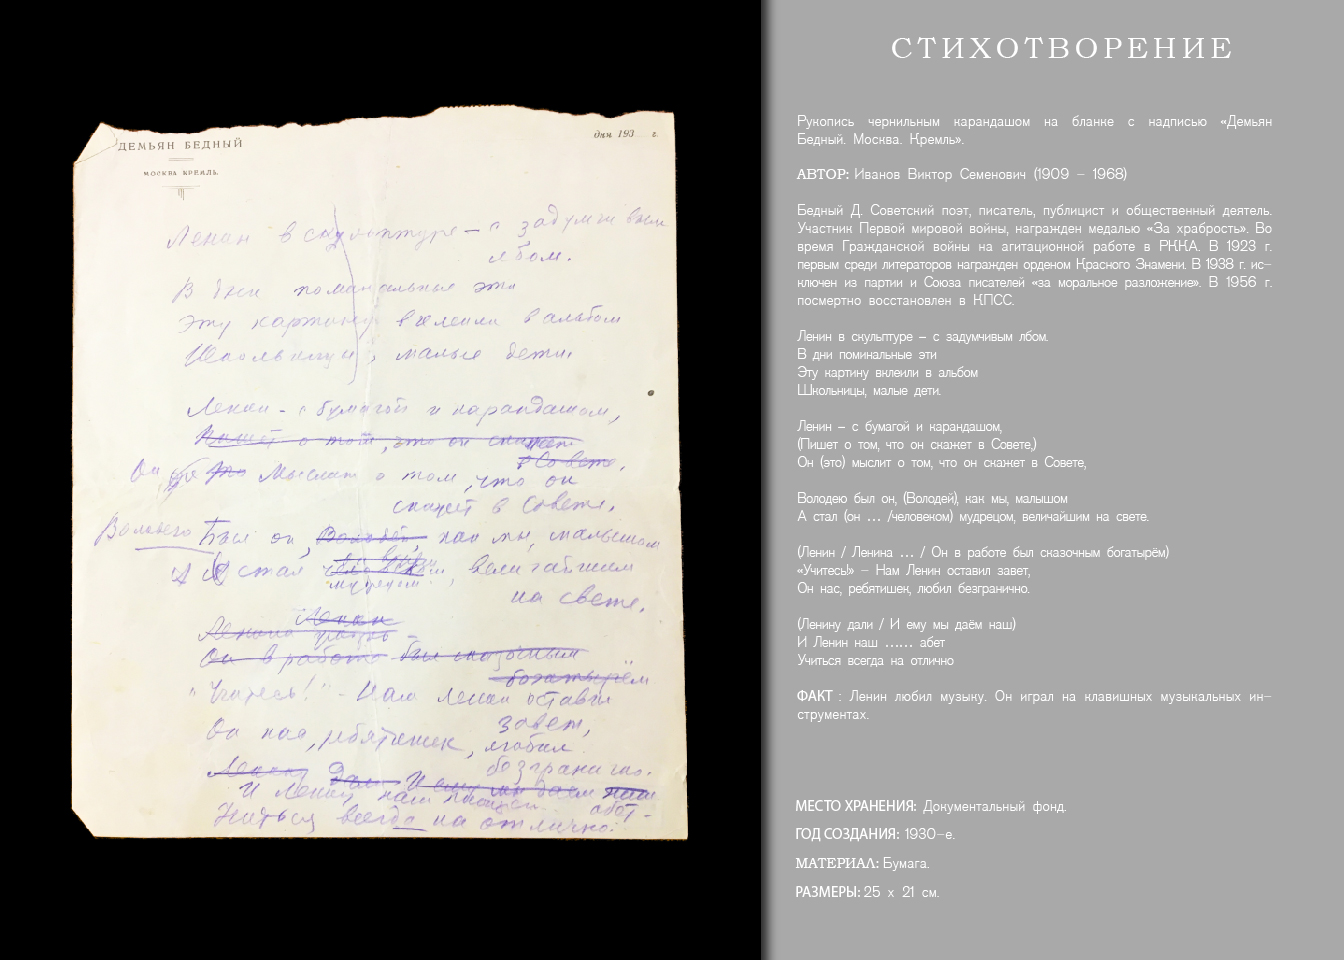 ДЕМЬЯН БЕДНЫЙ
МОСКВА КРЕМЛЬ.
дня 193 г.
Ленин в скульптуре – с задумчивым
лбом.
В дни поминальные эти
Эту картину вклеили в альбом
Школьницы, малые дети.
Ленин - с бумагой и карандашом,
Пишет о том, что он скажет
в Совете,
Он это Мыслит о том, что он
скажет в Совете,
Был он, Володей, как мы, малышом
А стал человеком, величайшим
мудрецом
на свете.
Ленин
Ленина
Он в работе был сказочным
богатырём
"Учитесь!" - Нам Ленин оставил
завет,
Он нас, ребятишек, любил
безгранично.
Ленину дали И ему мы даем наш
И Ленин наш абет
Учиться всегда на отлично.
СТИХОТВОРЕНИЕ
Рукопись чернильным карандашом на бланке с надписью «Демьян
Бедный. Москва. Кремль».
АВТОР: Иванов Виктор Семенович (1909 – 1968)
Бедный Д. Советский поэт, писатель, публицист и общественный деятель.
Участник Первой мировой войны, награжден медалью «За храбрость». Во
время Гражданской войны на агитационной работе в РККА. В 1923 г.
первым среди литераторов награжден орденом Красного Знамени. В 1938 г. ис–
ключен из партии и Союза писателей «за моральное разложение». В 1956 г.
посмертно восстановлен в КПСС.
Ленин в скульптуре – с задумчивым лбом.
В дни поминальные эти
Эту картину вклеили в альбом
Школьницы, малые дети.
Ленин – с бумагой и карандашом,
(Пишет о том, что он скажет в Совете,)
Он (это) мыслит о том, что он скажет в Совете,
Володею был он, (Володей), как мы, малышом
А стал (он ... /человеком) мудрецом, величайшим на свете.
(Ленин / Ленина ... / Он в работе был сказочным богатырём)
«Учитесь!» – Нам Ленин оставил завет,
Он нас, ребятишек, любил безгранично.
(Ленину дали / И ему мы даём наш)
И Ленин наш ...... абет
Учиться всегда на отлично
ФАКТ : Ленин любил музыку. Он играл на клавишных музыкальных ин–
струментах.
МЕСТО ХРАНЕНИЯ: Документальный фонд.
ГОД СОЗДАНИЯ: 1930–е.
МАТЕРИАЛ: Бумага.
РАЗМЕРЫ: 25 х 21 см.